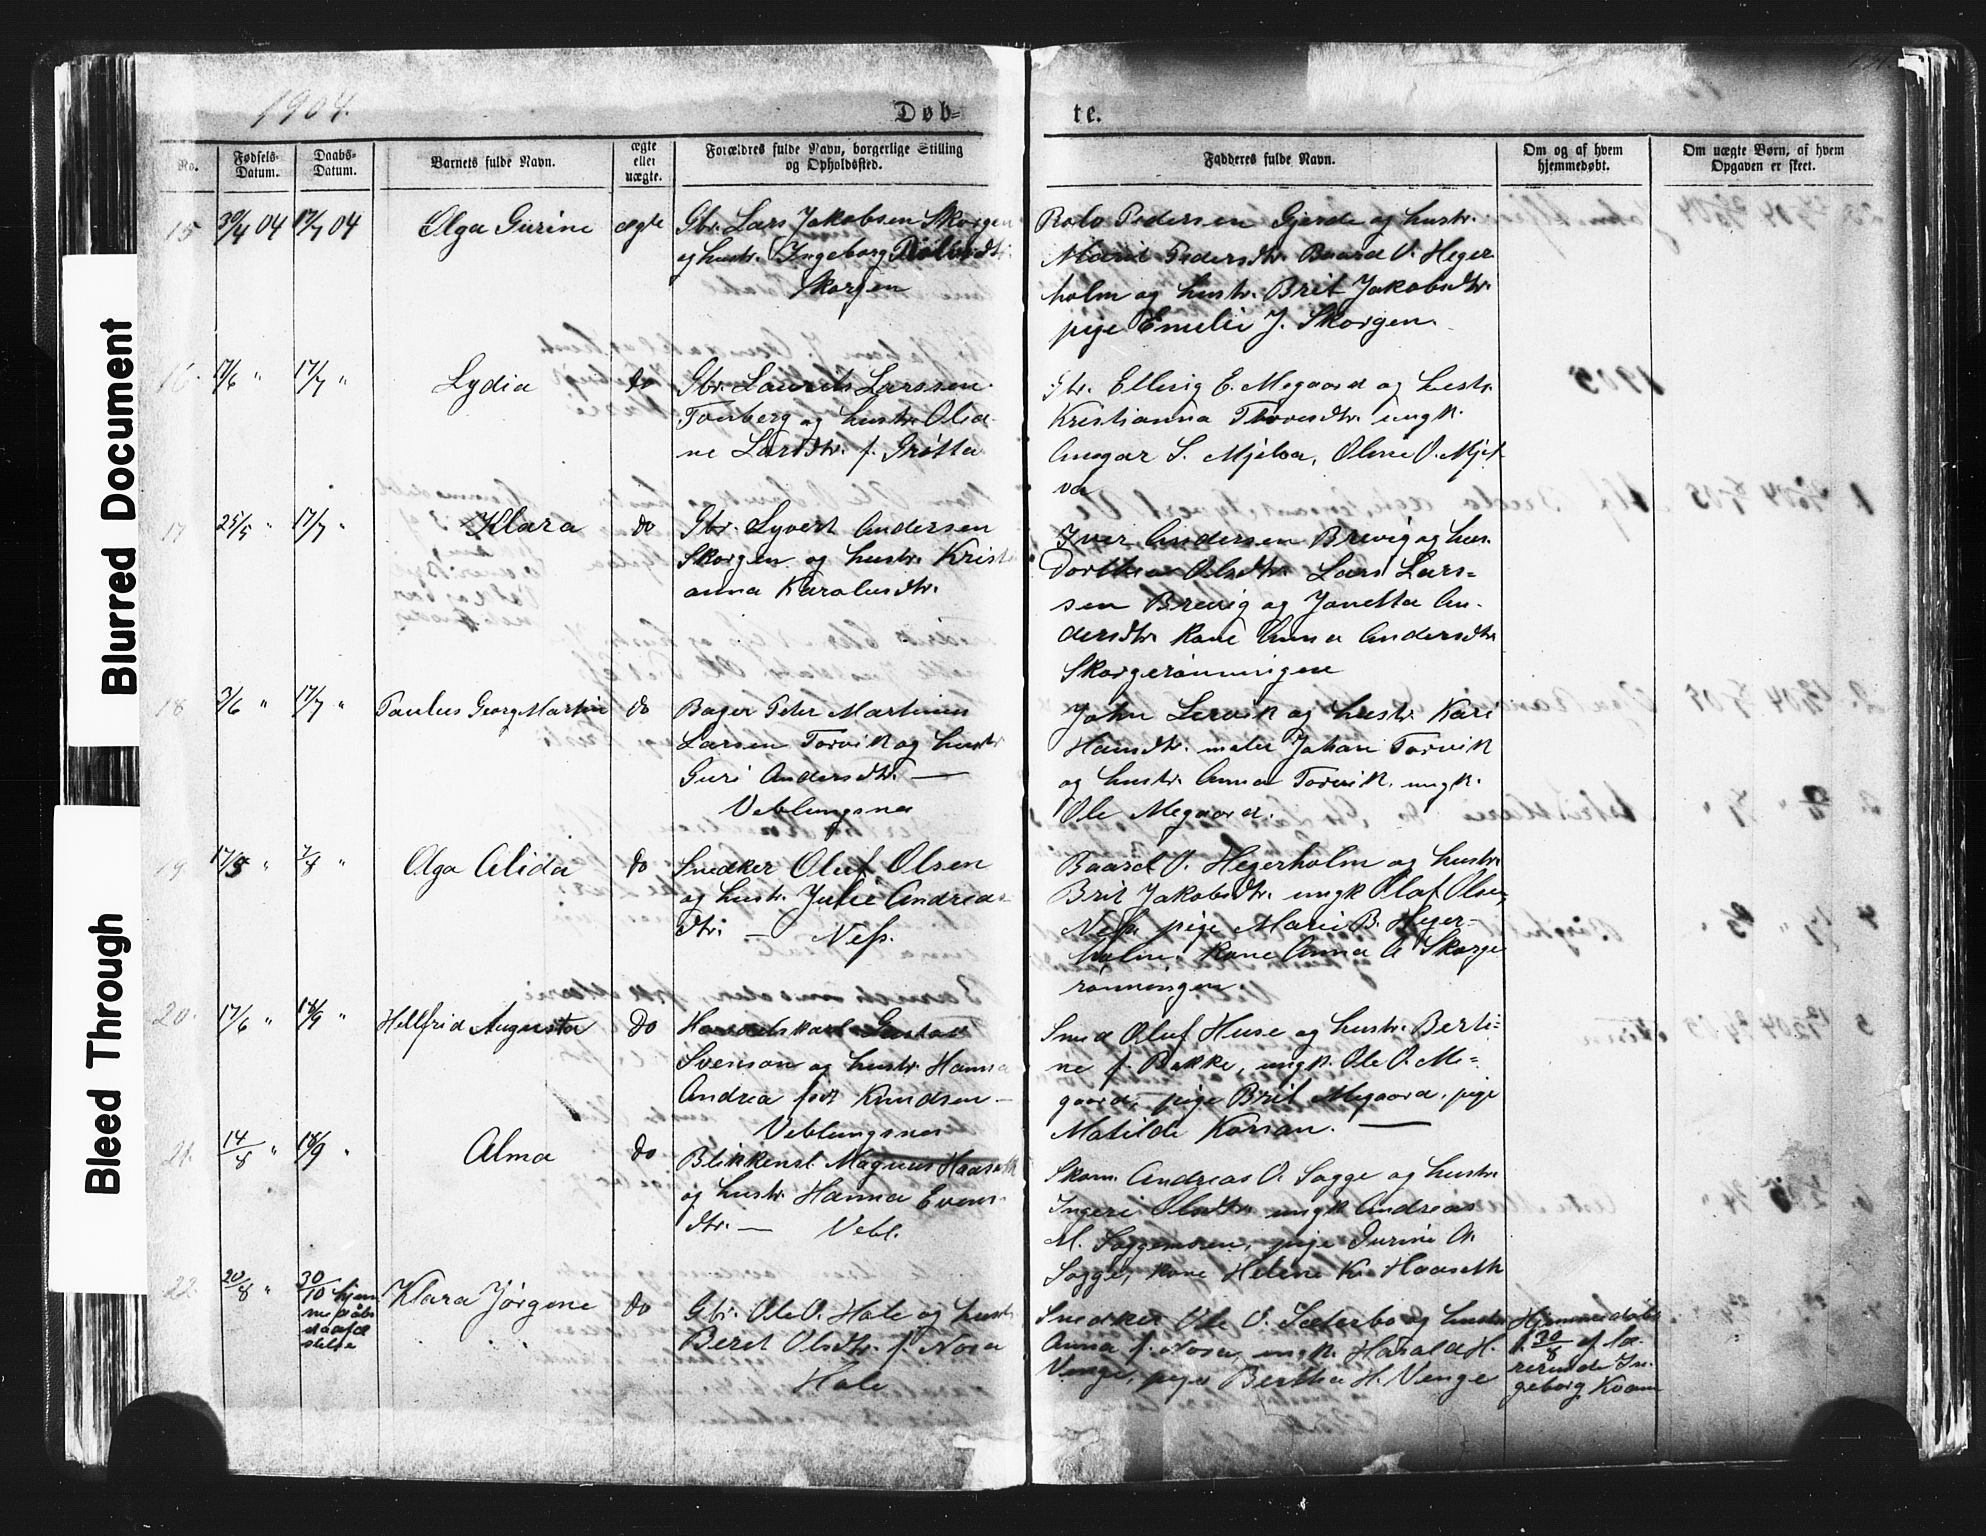 Blurred Document
Bleed Through
1904.
Døb-
te.
No.
Fødsels-
Datum.
Daabs-
Datum.
Barnets fulde Navn.
ægte
eller
uægte.
Forældres fulde Navn, borgerlige Stilling
og Opholdssted.
Fadderes fulde Navn.
Om og af hvem
hjemmedøbt.
Om uægte Børn, af hvem
Opgaven er skeet.
15
30/4 04
17/7 04
Olga Gurine
ægte
Gbr. Lars Jakobsen Skorgen
og hustr. Ingeborg
Skorgen
Rolv Pedersen Gjerde og hustr.
Marit Pedersdtr. Baard O. Heger-
holm og hustr. Brit Jakobsdtr.
pige Emilie J. Skorgen.
16.
"
17/7 "
Lydia
do
Gbr. Laurits Larssen
Torberg og hustr. Olia-
ne Larsdtr. f. Grötta
Gbr. Elling E. Megaard og hustr.
Kristianna Thoresdtr. ungk.
Ansgar S. Mjelva, Oline O. Mjel
va
17
25/5 "
17/7 "
Klara
do
Gbr. Syvert Andersen
Skorgen og hustr. Kristi
anna Karolusdtr.
Iver Andersen Brevig og hus.
Dorthea Olsdtr. Lars Lars-
sen Brevig og Janetta An-
dersdtr. kone Anna Andersdtr.
Skorgerönningen
18
3/6 "
17/7 "
Paulus Georg Martin
do
Bager Peter Martinus
Larsen Torvik og hustr
Guri Andersdtr. —
Veblungsnes
John Lervik og hustr. Kari
Hansdtr. maler Johan Torvik
og hustr. Anna Torvik. ungk.
Ole Megaard.
19
17/5 "
7/8 "
Olga Alida
do
Snedker Oluf Olsen
og hustr. Julie Andreas-
dtr. — Neſs.
Baard O. Hegerholm og hustr.
Brit Jakobsdtr. ungk Olaf Olsen,
Neſs. pige Marie B. Heger-
holm. kone Anna A Skorge
rönningen.
20.
17/6 "
18/9 "
Hellfrid Augusta
do
Handelskarl Gustav
Svenson og hustr. Hanna
Andrea födt Knudsen —
Veblungsnes
Smed Oluf Huse og hustr. Berti-
ne f. Bakke, ungk. Ole O. Me-
gaard, pige Brit Megaard, pige
Matilde Konan. —
21.
14/8 "
18/9 "
Alma
do
Blikkensl. Magnus Haaseth
og hustr. Hanna Evens-
dtr. — Vebl.
Skom. Andreas O. Sogge og hustr.
Ingeri Olsdtr. ungk Andreas
M. Soggemoen, pige Gurine A.
Sogge, kone Heline K. Haaseth
22.
20/8 "
30/10 hjem
me
stelse
Klara Jörgene
do
Gbr. Ole O. Hole og hustr.
Beret Olsdtr. f. Nora
Hole
Snedker Ole O. Sæterbo og hustr.
Anna f. Nora, ungk. Harald H.
Venge, pige Bertha H. Venge
Hjemmedöbt
d. 30/8 af læ-
rerinde In-
geborg Kvam